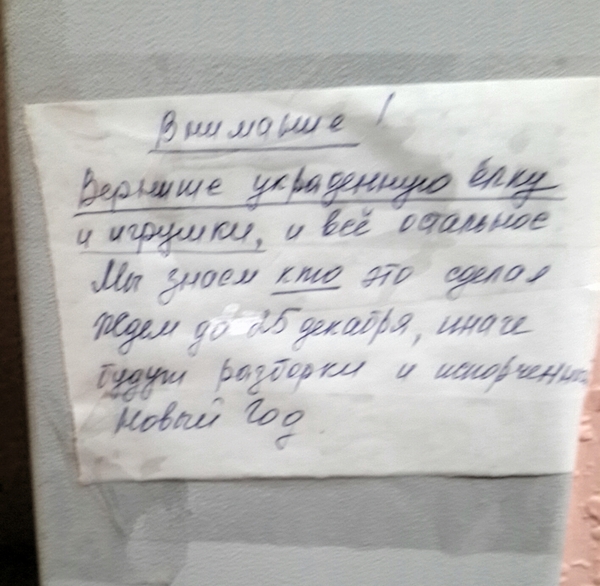 Внимание!
Верните украденную ёлку
и игрушки, и всё остальное
Мы знаем кто это сделал
Ждем до 25 декабря, иначе
будут разборки и испорченный
Новый Год